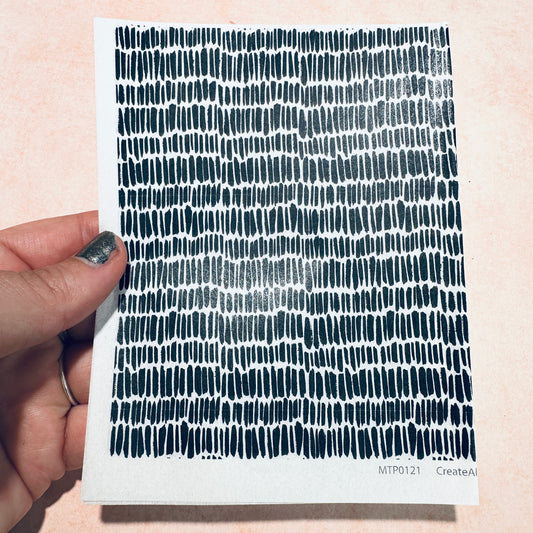 MTP0121 CreateAl